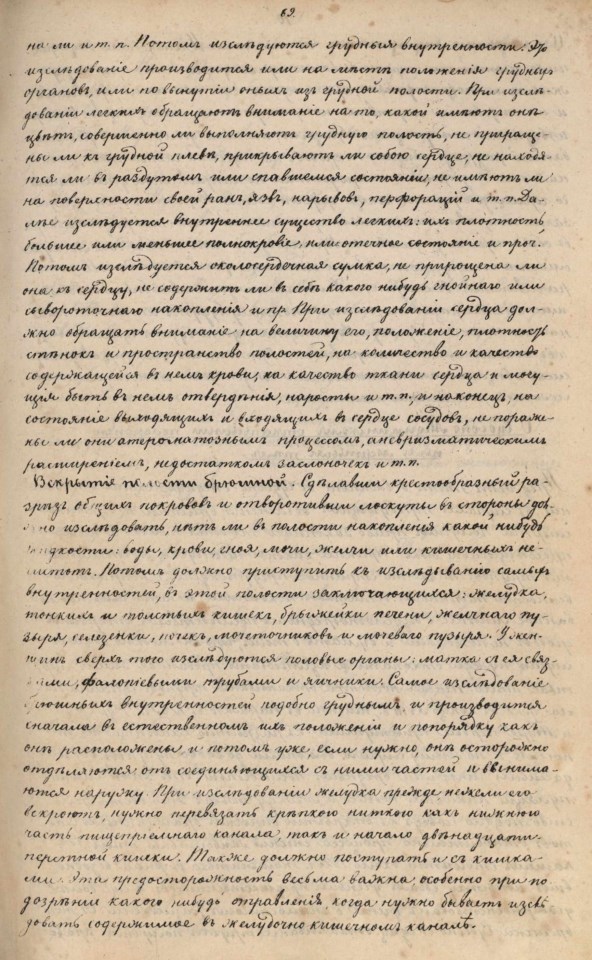 69.
на ли и т. п. Потомъ изслѣдуются грудныя внутренности. Это
изслѣдованіе производится или на мѣстѣ положенія грудныхъ
органовъ, или по вынутіи оныхъ изъ грудной полости. При изслѣ-
дованіи легкихъ обращаютъ вниманіе на то, какой имѣютъ онѣ
цвѣтъ, совершенно ли выполняютъ грудную полость, не прираще-
ны ли къ грудной плевѣ, прикрываютъ ли собою сердце, не находя-
тся ли въ раздутомъ или спавшемся состояніи, не имѣютъ ли
на поверхности своей ранъ, язвъ, нарывовъ, перфорацій и т. п. Да-
лѣе изслѣдуется внутреннее существо легкихъ: ихъ плотность,
большее или меньшее полнокровіе, или отечное состояніе и проч.
Потомъ изслѣдуется околосердечная сумка, не прирощена ли
она къ сердцу, не содержитъ ли въ себѣ какого нибудь гнойнаго или
сывороточнаго накопленія и пр. При изслѣдованіи сердца дол-
жно обращать вниманіе на величину его, положеніе, плотность
стѣнокъ и пространство полостей, на количество и качество
содержащейся въ немъ крови, на качество ткани сердца и могу-
щія быть въ немъ отвердѣнія, наросты и т. п. и наконецъ, на
состояніе выходящихъ и входящихъ въ сердце сосудовъ, не пораже-
ны ли они атероматознымъ процессомъ, аневризматическимъ
расширеніемъ, недостаткомъ заслоночекъ и т. п.
Вскрытіе полости брюшной. Сдѣлавши крестообразный ра-
зрѣзъ общихъ покрововъ и отворотивши лоскуты въ стороны дол-
жно изслѣдовать, нѣтъ ли въ полости накопленія какой нибудь
жидкости: воды, крови, гноя, мочи, желчи или кишечныхъ не-
чистотъ. Потомъ должно приступить къ изслѣдыванію самыхъ
внутренностей, въ этой полости заключающихся: желудка,
тонкихъ и толстыхъ кишекъ, брыжейки печени, желчнаго пу-
зыря, селезенки, почекъ, мочеточниковъ и мочеваго пузыря. У жен-
щинъ сверхъ того изслѣдуются половые органы: матка съ ея связ-
ками, фалопіевыми трубами и яичники. Самое изслѣдованіе
брюшныхъ внутренностей подобно груднымъ и производится
сначала въ естественномъ ихъ положеніи и попорядку какъ
онѣ расположены, и потомъ уже, если нужно, онѣ осторожно
отдѣляются отъ соединяющихся съ ними частей и вынима-
ются наружу. При изслѣдованіи желудка прежде нежели его
вскроютъ, нужно перевязать крѣпкою ниткою какъ нижнюю
часть пищепріемнаго канала, такъ и начало двѣнадцати-
перстной кишки. Также должно поступать и съ кишка-
ми. Эта предосторожность весьма важна, особенно при по
дозрѣніи какого нибудь отравленія, когда нужно бываетъ изслѣ
довать содержимое въ желудочно кишечномъ каналѣ.